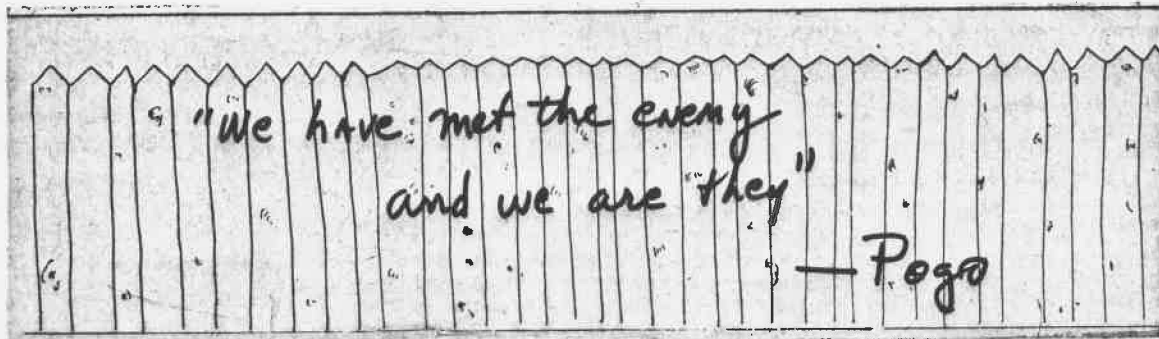 "We have met the enemy
and we are "they"
— Pogo